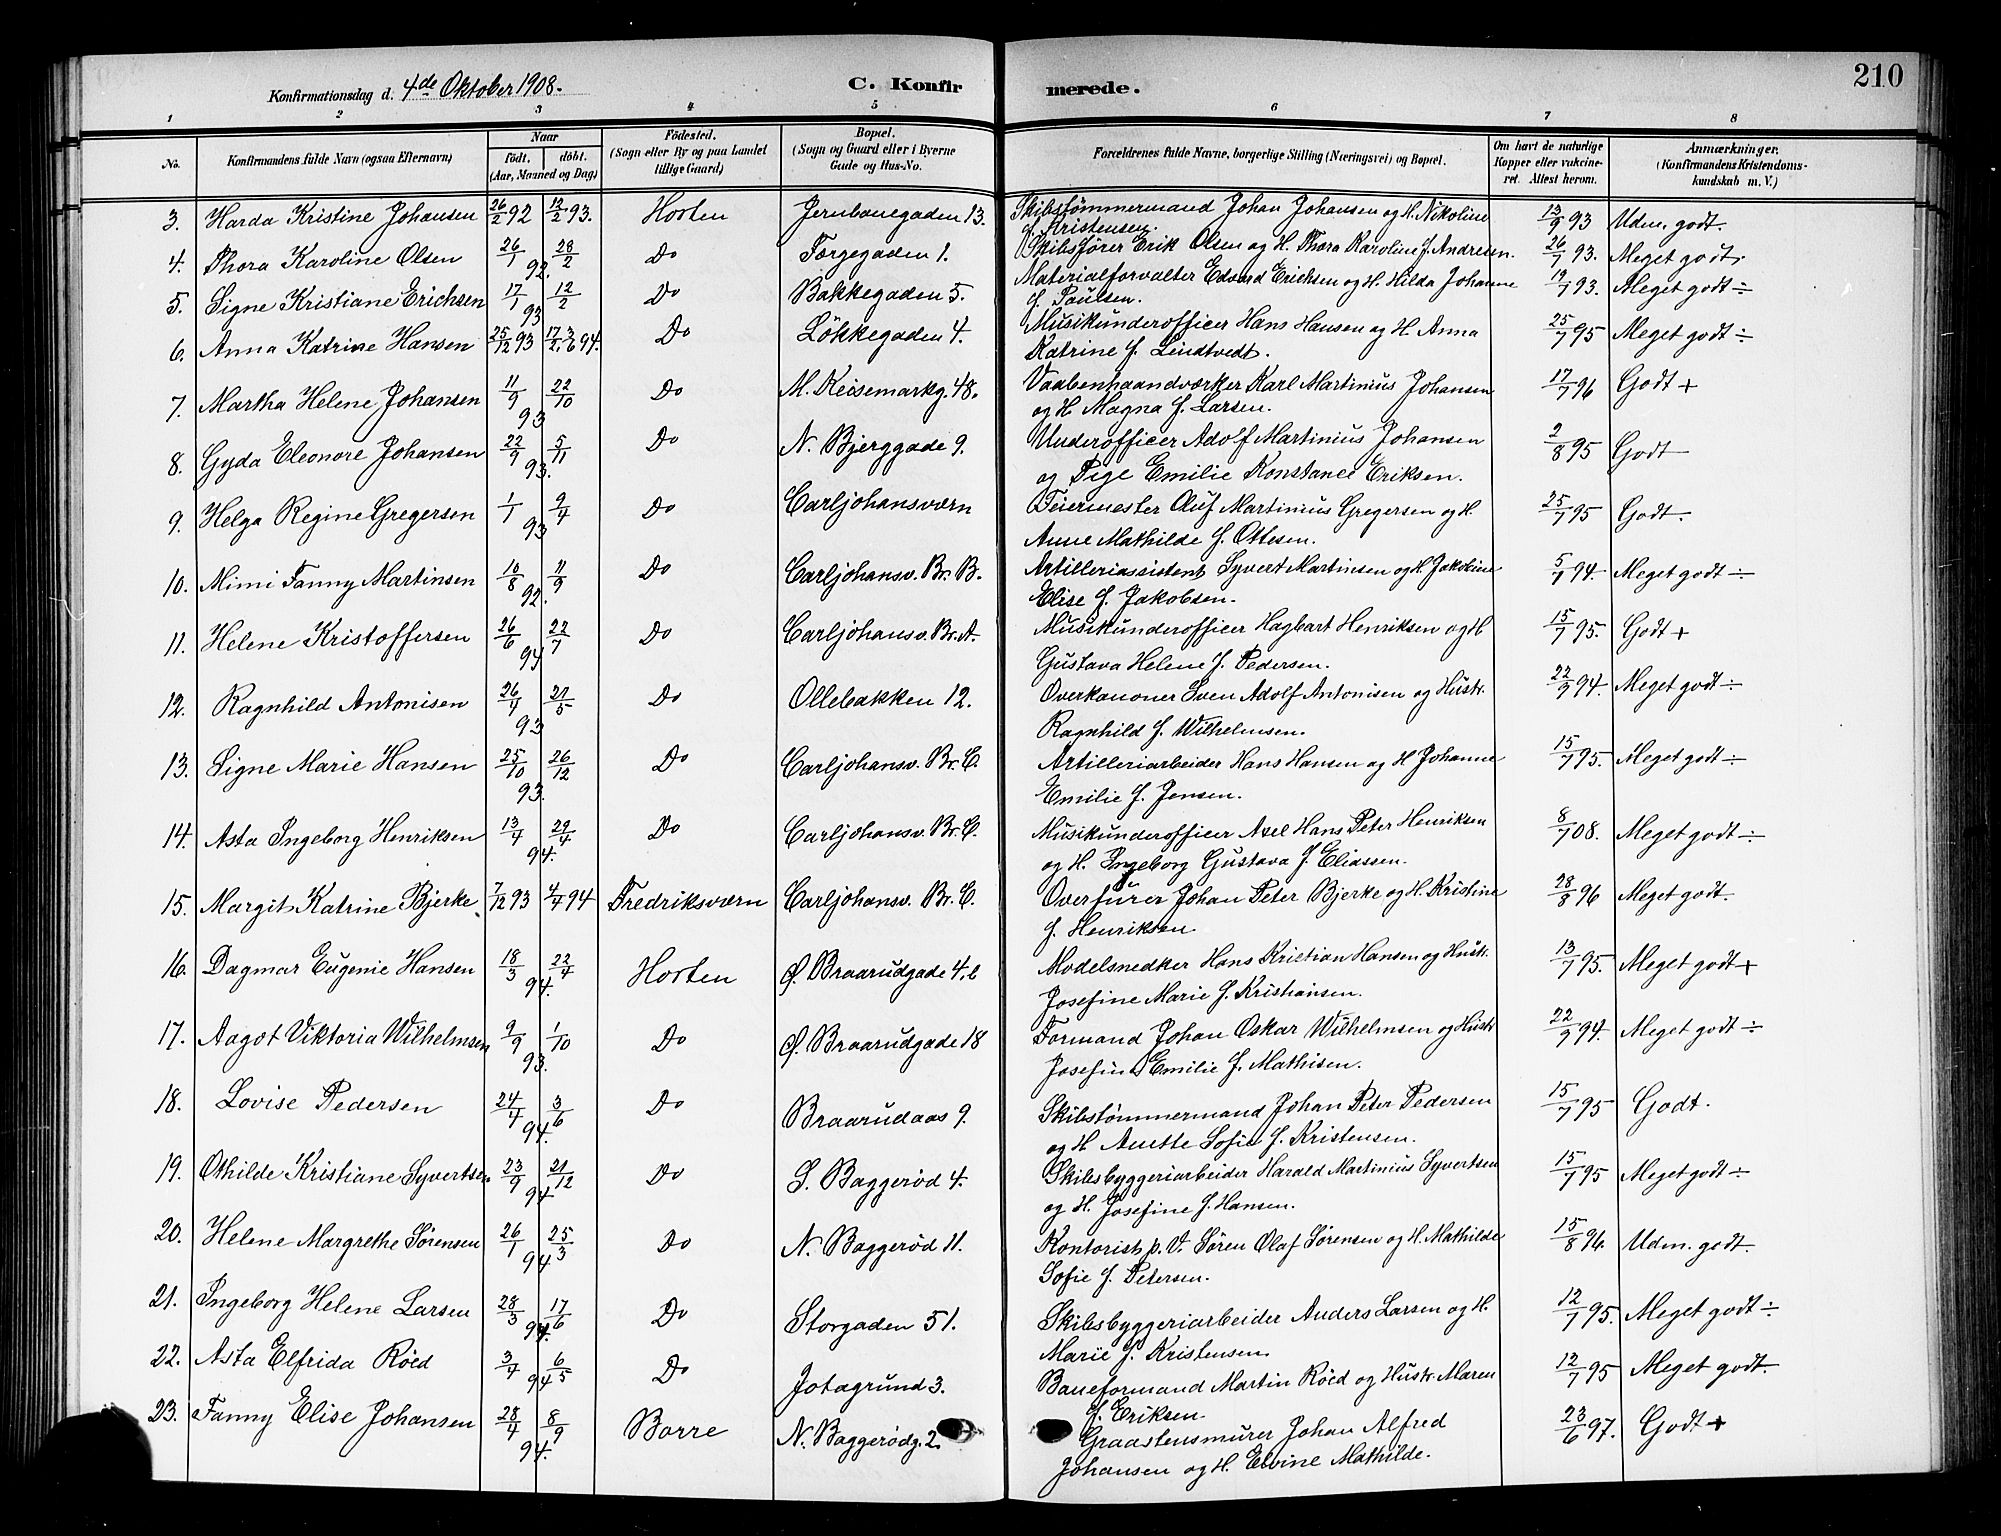 Konfirmationsdag d. 4de Oktober 1908. C. Konfirmerede. 210
1 2 3 4 5 6 7 8
No. Konfirmandens fulde Navn (ogsaa Efternavn) Naar født. døbt. (Aar, Maaned og Dag) Fødested. (Sogn eller By og paa Landet tillige Gaard) Bopæl. (Sogn og Gaard eller i Byerne Gade og Hus-No. Forældrenes fulde Navne, borgerlige Stilling (Næringsvei) og Bopæl. Om havt de naturlige Kopper eller vakcineret. Attest herom. Anmærkninger. (Konfirmandens Kristendomskundskab m. V.)
3. Harda Kristine Johansen 26/2 92 12/2 93. Horten Jernbanegaden 13. Skibstømmermand Johan Johansen og H. Nikoline
f. Kristensen. 13/9 93 Udm. godt.
4. Thora Karoline Olsen 26/1 92. 28/2 Do Torgegaden 1. Skibsfører Erik Olsen og H. Thora Karoline f. Andresen. 26/7 93. Meget godt.
5. Signe Kristiane Erichsen 17/1 93 12/2 Do Bakkegaden 5. Materialforvalter Edvard Erichsen og H. Hilda Johanne
f. Paulsen. 19/7 93. Meget godt ÷
6. Anna Katrine Hansen 25/12 93 17/2. 3/6 94. Do Løkkegaden 4. Musikunderofficer Hans Hansen og H. Anna
Katrine f. Lindtvedt. 25/7 95 Meget godt ÷
7. Martha Helene Johansen 11/9 93 22/10 Do M. Keisemarkg. 48. Vaabenhaandværker Karl Martinius Johansen
og H. Magna f. Larsen. 17/7 96 Godt +
8. Gyda Eleonore Johansen 22/9 93. 5/11 Do N. Bjerggade 9. Underofficer Adolf Martinius Johansen
og Pige Emilie Konstance Eriksen. 2/8 95 Godt
9. Helga Regine Gregersen 1/1 93 9/4 Do Carljohansværn Feiermester Oluf Martinius Gregersen og H.
Anne Mathilde f. Ottesen. 25/7 95 Godt.
10. Mimi Fanny Martinsen 10/8 92. 11/9 Do Carljohansv. Br. B. Artilleriassistent Syvert Martinsen og H. Jakobine
Elise f. Jakobsen. 5/7 94. Meget godt ÷
11. Helene Kristoffersen 26/6 94 22/7 Do Carljohansv. Br. A. Musikunderofficer Hagbart Henriksen og H
Gustava Helene f. Pedersen. 15/7 95. Godt +
12. Ragnhild Antonisen 26/4 93 21/5 Do Ollebakken 12. Overkanoner Sven Adolf Antonisen og Hustr.
Ragnhild f. Wilhelmsen. 22/9 94. Meget godt ÷
13. Signe Marie Hansen 25/10 93. 26/12 Do Carljohansv. Br. C. Artilleriarbeider Hans Hansen og H Johanne
Emilie f. Jensen. 15/7 95. Meget godt ÷
14. Asta Ingeborg Henriksen 13/4 94. 29/4 Do Carljohansv. Br. C. Musikunderofficer Axel Hans Peter Henriksen
og H. Ingeborg Gustava f. Eliassen. 8/7 08. Meget godt ÷
15. Margit Katrine Bjerke. 7/12 93 4/4 94 Fredriksværn Carljohansv. Br. C. Overfürer Johan Peter Bjerke og H. Kristine
f. Henriksen. 28/8 96 Meget godt.
16. Dagmar Eugenie Hansen 18/3 94. 22/4 Horten Ø. Braarudgade 4.b Modelsnedker Hans Kristian Hansen og Hustr.
Josefine Marie f. Kristiansen. 13/7 95. Meget godt +
17. Aagot Viktoria Wilhelmsen 9/9 93. 1/10 Do Ø. Braarudgade 18 Formand Johan Oskar Wilhelmsen og Hustr
Josefine Emilie f. Mathisen. 22/9 94. Meget godt ÷
18. Lovise Pedersen 24/4 94. 3/6 Do Braarudaas 9. Skibstømmermand Johan Peter Pedersen
og H Anette Sofie f. Kristensen. 15/7 95 Godt.
19. Othilde Kristiane Syvertsen 23/9 94. 21/12 Do S. Baggerød 4. Skibsbyggeriarbeider Harald Martinius Syvertsen
og H. Josefine f. Hansen. 15/7 95 Meget godt ÷
20. Helene Margrethe Sørensen 26/1 94 25/3 Do N. Baggerød 11. Kontorist p. V. Søren Olaf Sørensen og H. Mathilde
Sofie f. Petersen. 15/8 96. Udm. godt.
21. Ingeborg Helene Larsen 28/3 94. 17/6 Do Storgaden 51. Skibsbyggeriarbeider Anders Larsen og H.
Marie f. Kristensen. 12/7 95. Meget godt ÷
22. Asta Elfrida Röed 3/4 94 6/5 Do Jotagrund 3. Baneformand Martin Röed og Hustr. Maren
f. Eriksen. 12/7 95 Meget godt.
23. Fanny Elise Johansen 28/4 94. 8/9 Borre N. Baggerødg. 2. Graastensmurer Johan Alfred
Johansen og H. Elvine Mathilde. 23/6 97. Godt +